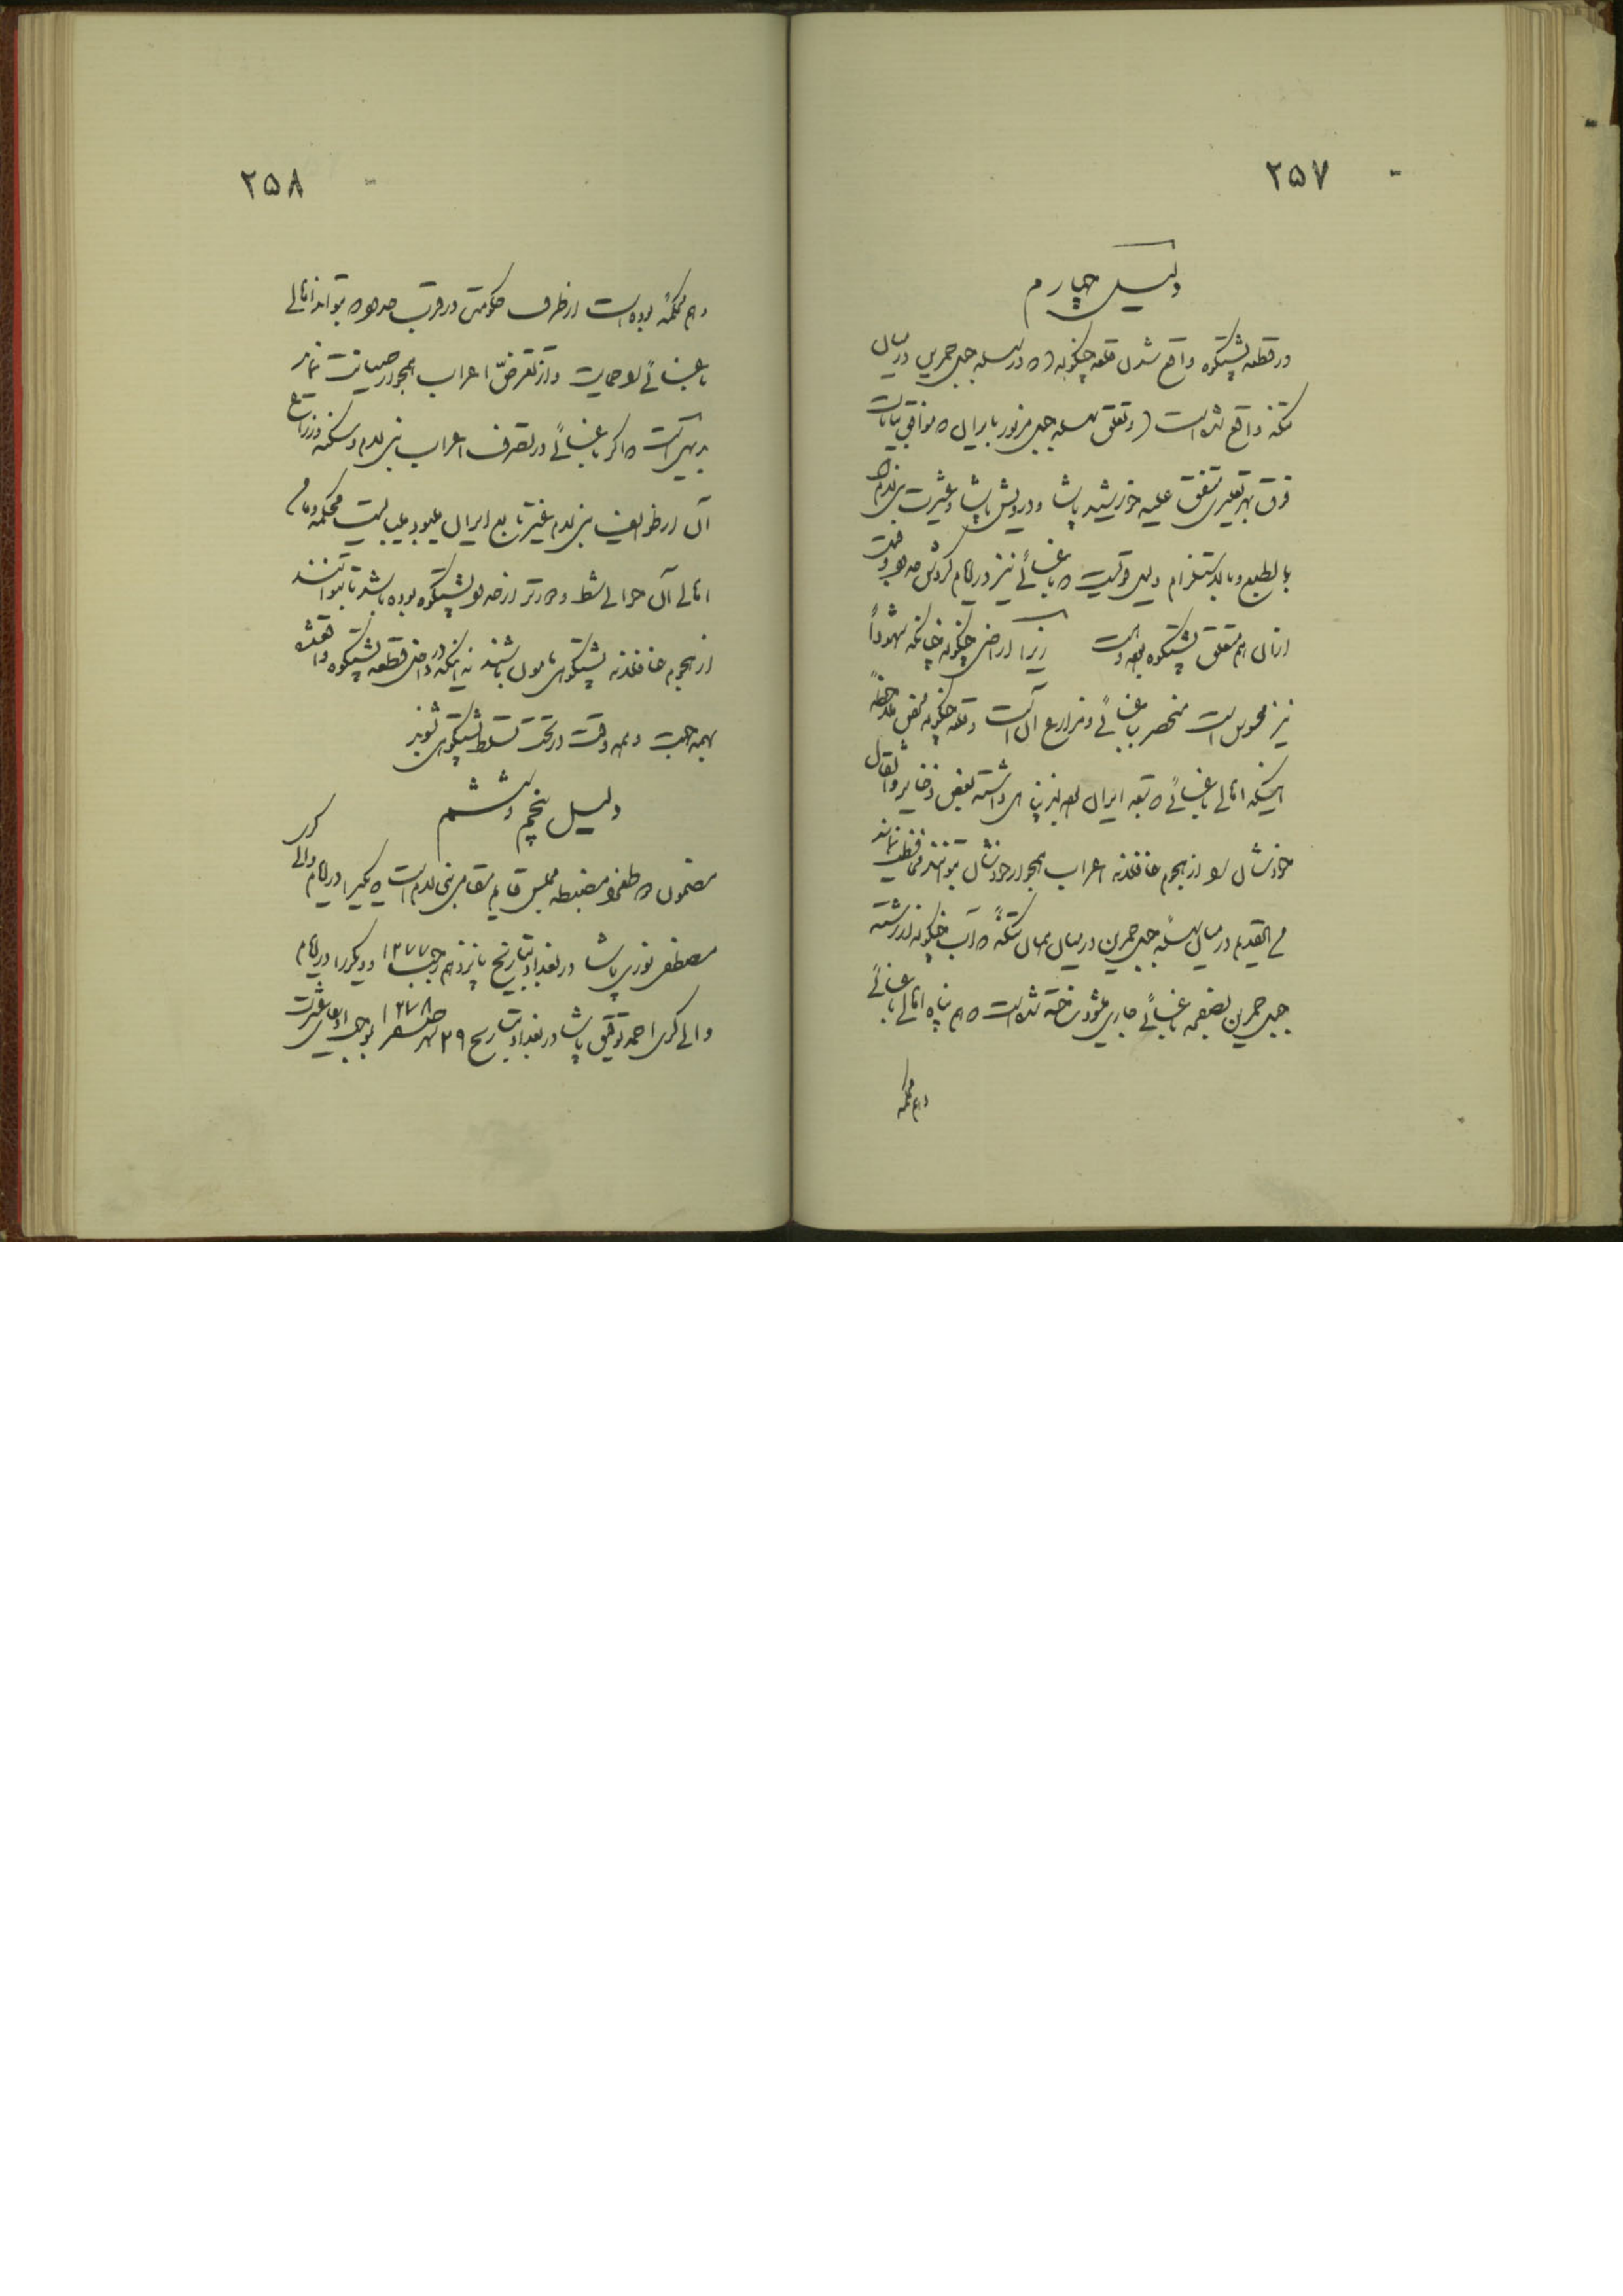 ۲۵۷
دلیل چهارم
در قطعه پشتکوه واقع شدن قلعه چنکوله که در سلسله جبل حمرین در میان
تنکه واقع شده است و تعلق سلسله جبل مزبور بایران که موافق بیانات
فوق بهر تعبیری متفق علیه خورشید پاشا و درویش پاشا و عشیرت بنی لام
بالطبع و بالاستلزام دلیل قویست که باغسائی نیز در ایام کردش حدود و قبل
از آن هم متعلق پشتکوه بوده است زیرا اراضی چنکوله چنانکه شهوداً
نیز محسوس است منحصر بباغسائی و مزارع آن است و قلعه چنکوله محض ملاحظه
اینکه اهالی باغسائی که تبعه ایران بودند پناهی داشته بعض ذخایر و اثقال
خودشان را از هجوم غافلانه اعراب همجوار خودشان بتوانند محافظت نمایند
من القدیم در میان سلسله جبل حمرین در میان همان تنکه که آب چنکوله از رشته
جبل حمرین بضمیمه باغسائی جاری میشود ساخته شده است که هم پناه اهالی باغسائی
و هم محکمه
۲۵۸
و هم محکمه بوده است از طرف حکومت در قرب حدود که بتواند اهالی
باغسائی را حمایت و از تعرض اعراب همجوار صیانت نماید
بدیهی است که اگر باغسائی در تصرف اعراب بنی لام و سکنه و زراع
آن از طوایف بنی لام غیر تابع ایران میبود میبایست محکمه و مأمن
اهالی آن حوالی شط و دورتر از حدود پشتکوه بوده باشد تا بتوانند
از هجوم غافلانه پشتکوهی مأمون باشند نه اینکه در داخل قطعه پشتکوه واقع شده
بهمه جهت و همه وقت در تحت تسلط پشتکوهی شوند
دلیل پنجم و ششم
مضمون دو طغرا مضبطه مجلس قایم مقامی بنی لام است که یکی را در ایام والی کری
مصطفی نوری پاشا در بغداد بتاریخ پانزدهم رجب ۱۲۷۷ و دیکری را در ایام
والی کری احمد توفیق پاشا در بغداد بتاریخ ۲۹ شهر صفر ۱۲۷۸ بموجب ادعای عشیرت